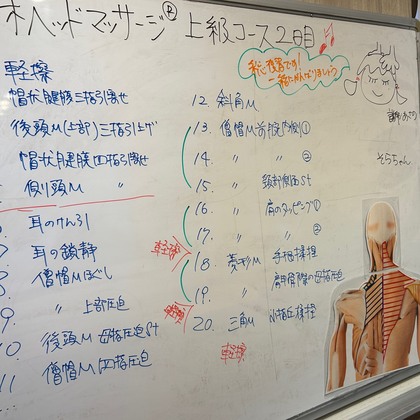 オヘッドマッサージ® 上級コース2日目
軽擦
帽状腱膜三指引寄せ
後頭M(上部)三指引上げ
帽状腱膜四指引寄せ
側頭M 〃
耳のけん引
7 耳の鎮静
8 僧帽Mほぐし
9. 〃 上部圧迫
10 後頭M 母指圧迫St
11 僧帽M四指圧迫
12. 斜角M
13. 僧帽M首肩内側①
14. 〃 〃 ②
15. 〃 頚部側面St
16. 〃 肩のタッピング①
17. 〃 〃 ②
軽擦
18 菱形M 手根揉捏
19. 〃 肩甲骨際の母指圧迫
軽擦
20. 三角M 4指圧揉捏
軽擦
一緒にがんばりましょう
そらちゃん